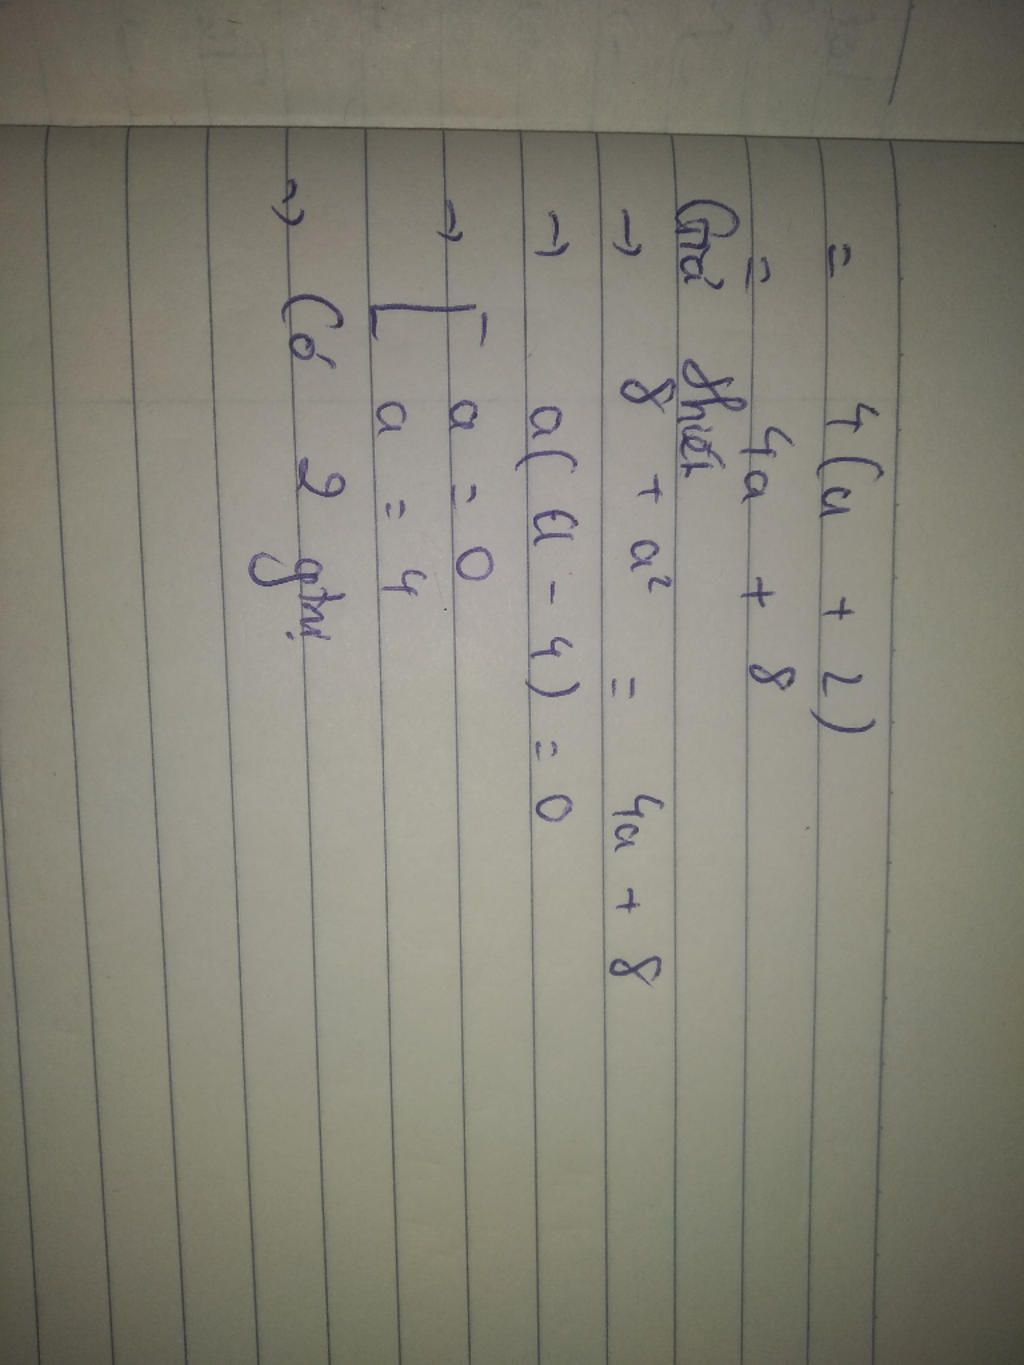 = 4(a + 2)
= 4a + 8
Giả thiết
→ 8 + a² = 4a + 8
→ a(a - 4) = 0
→ [ a = 0
a = 4
→ Có 2 gtrị